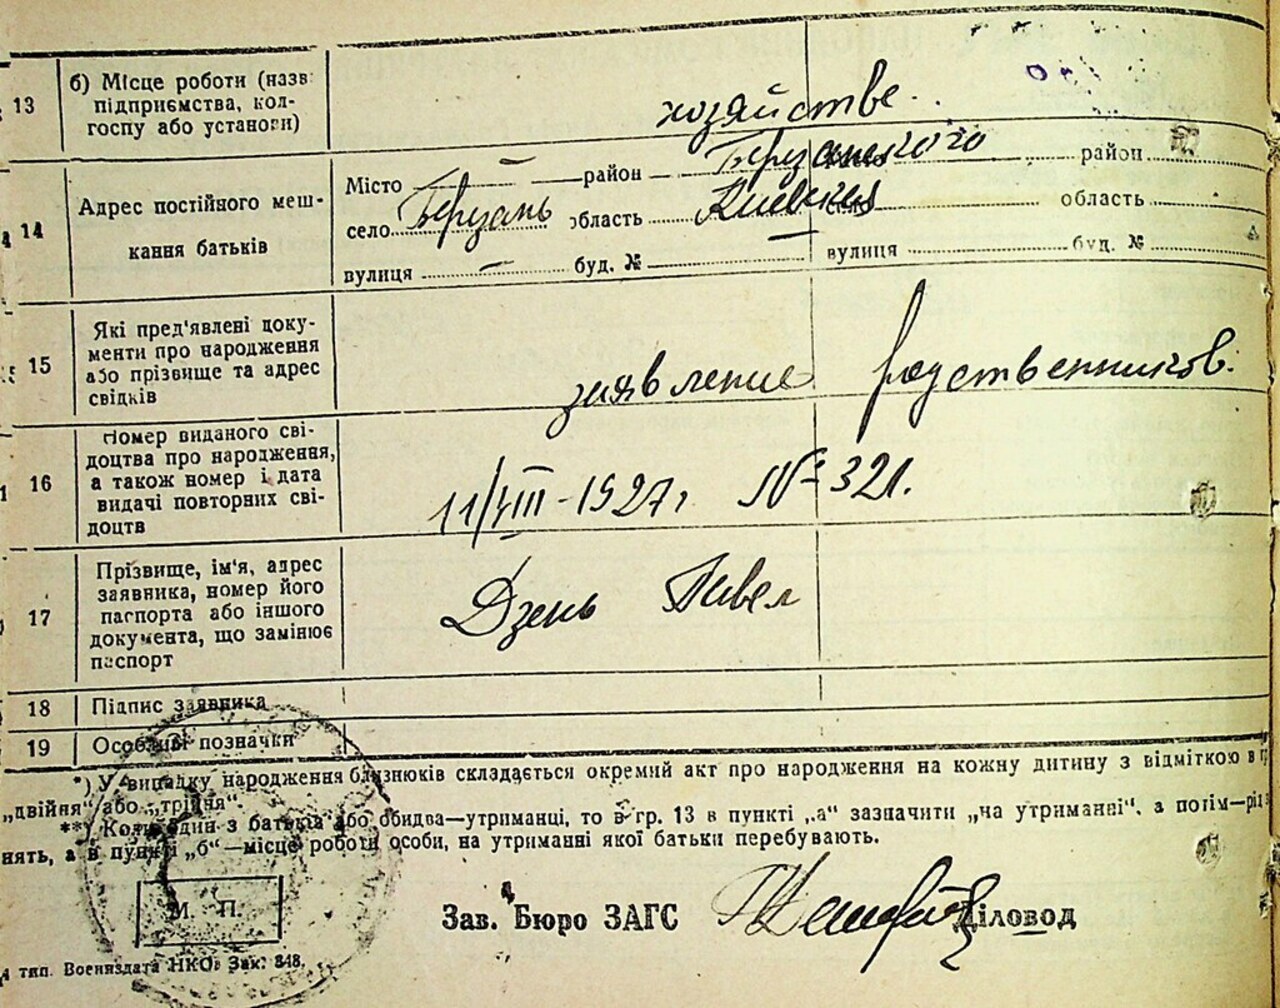 13
б) Місце роботи (назв
підприємства, кол-
госпу або установи)
хозяйстве.
14
Адрес постійного меш-
кання батьків
Місто — район Березанского район
село Березань область Киевская село область
вулиця — буд. № — вулиця буд. №
15
Які пред'явлені доку-
менти про народження
або прізвище та адрес
свідків
заявление родственников.
16
Номер виданого сві-
доцтва про народження,
а також номер і дата
видачі повторних сві-
доцтв
11/VIII-1927г № 321.
17
Прізвище, ім'я, адрес
заявника, номер його
паспорта або іншого
документа, що замінює
паспорт
Дзень Павел
18 Підпис заявника
19 Особливі позначки
*) У випадку народження близнюків складається окремий акт про народження на кожну дитину з відміткою в
„двійня“ або „трійня“.
**) Коли один з батьків або обидва—утриманці, то в гр. 13 в пункті „а“ зазначити „на утриманні“, а потім—рід
нять, а в пункті „б“—місце роботи особи, на утриманні якої батьки перебувають.
М. П.
Зав. Бюро ЗАГС Діловод
тип. Воениздата НКО. Зак. 848.